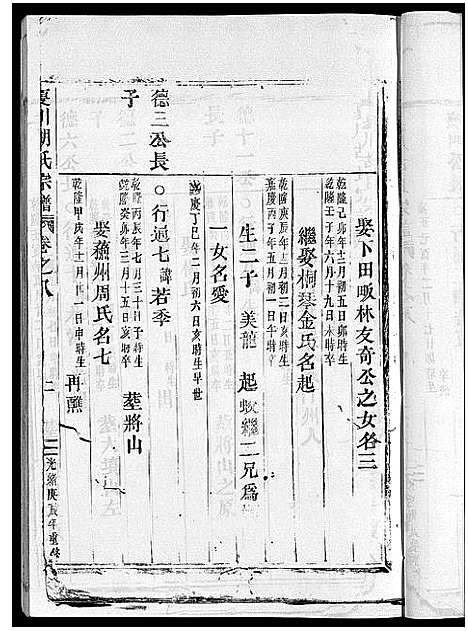 娶下田畈林友奇公之女名三
乾隆己卯年十二月初五日卯時生
乾隆壬子年六月十九日未時卒
繼娶桐琴金氏名起
乾隆庚辰年三月初二日亥時生
嘉慶 年五月初一日午時卒
生二子 美龍 起蛟繼二兄爲
一女名愛
嘉慶丁巳年二月初六日亥時生早世
德三公長子
○行逈七諱若季
乾隆丙辰年七月三十日子時生
乾隆癸卯年三月十五日亥時卒
葬將山
娶蕉州周氏名七
乾隆甲戌年十二月廿一日申時生
再醮
夏川胡氏宗譜
卷之八
二
光緒庚辰年重修